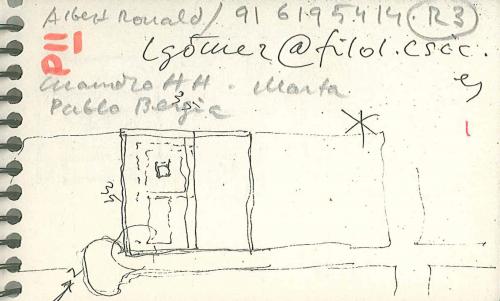 Albert Ronald / 91 6195414. R3
PII
lgómez@filol.csic.
es
Leandro HH. Marta
Pablo Bergia